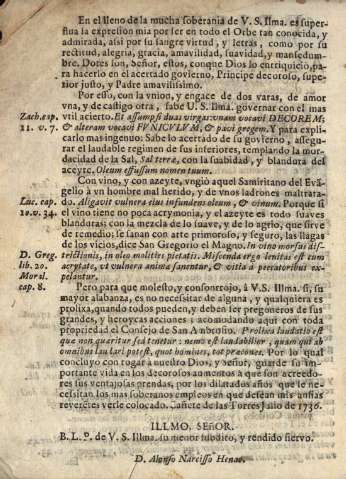 En el lleno de la mucha soberania de V. S. Ilma. es super-
flua la expression mia por ser en todo el Orbe tan conocida, y
admirada, asi por su sangre virtud, y letras, como por su
rectitud, alegria, gracia, amavilidad, suavidad, y mansedum-
bre. Dores son, Señor, estos, conque Dios lo enriquició, pa
ra hacerlo en el acertado govierno, Principe decoroso, supe-
rior justo, y Padre amavilisimo.
Por esso, con la vnion, y engace de dos varas, de amor
vna, y de castigo otra, sabe U. S. Ilma. governar con el mas
Zach. cap. vtil acierto. Et assumpsi duas virgas: vnam vocavi DECOREM;
11. v. 7. & alteram vocavi FUNICULUM, & pavi gregem. Y para expli-
carlo mas ingenuo: Sabe lo acertado de su govierno, assegu-
rar el laudable regimen de sus inferiores, templando la mor-
dacidad de la Sal, Sal terræ, con la suabidad, y blandura del
aceyte. Oleum effusum nomen tuum.
Con vino, y con azeyte, vngiò aquel Samiritano del Evā-
gelio à vn hombre mal herido, y de vnos ladrones maltrata-
Luc. cap. do. Alligavit vulnera eius infundens oleum, & vinum. Porque si
10. v. 34. el vino tiene no poca acrymonia, y el azeyte es todo suaves
blanduras: con la mezcla de lo suave, y de lo agrio, que sirve
de remedio, se sanan con arte primoroso, y seguro, las llagas
de los vicios, dice San Gregorio el Magno. In vino morsus dis-
D. Greg. trictionis, in oleo mollities pietatis. Miscenda ergo lenitas est cum
lib. 20. acrytate, vt vulnera anima sanentur, & vitia à peccatoribus ex-
Moral. pelantur.
cap. 8. Pero para que molesto, y consonrojo, à V. S. Illma. si, su
mayor alabanza, es no necesitar de alguna, y qualquiera es
prolixa, quando todos pueden, y deben ser pregoneros de sus
grandes, y heroycas acciones: acomodando aqui con toda
propriedad el Consejo de San Ambrosio. Prolixa laudatio est
que non quæritur sed tenetur: nemo est laudabilior, quam qui ab
omnibus laudari potest, quot homines, tot præcones. Por lo qual
concluyo con rogar à nuestro Dios, y Señor, guarde su im-
portante vida en los decorosos aomentos à que son acreedo-
res sus ventajosas prendas, por los dilatados años que le ne-
cesitan los mas soberanos empleos en que desean mis ansias
reverētes verse colocado. Cañete de las Torres Julio de 1736.
ILLMO. SEÑOR.
B. L. P. de V. S. Illma. su menor subdito, y rendido siervo.
D. Alonso Narcisso Henao.